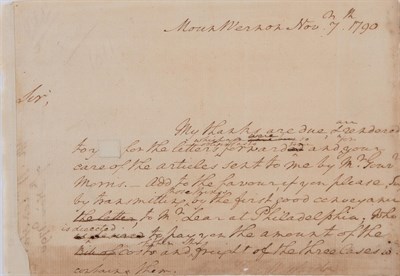 Mount Vernon Novr. 7th 1790
Sir,
My thanks are due & are rendered
to you for the letters forwarded and your
care of the articles sent to me by Mr. Gouvr
Morris. — Add to the favour if you please,
by transmitting by the first good conveyance
the letter to Mr. Lear at Philadelphia, who
is directed
to pay you the amount of the
cost and freight of the three cases
containing them.